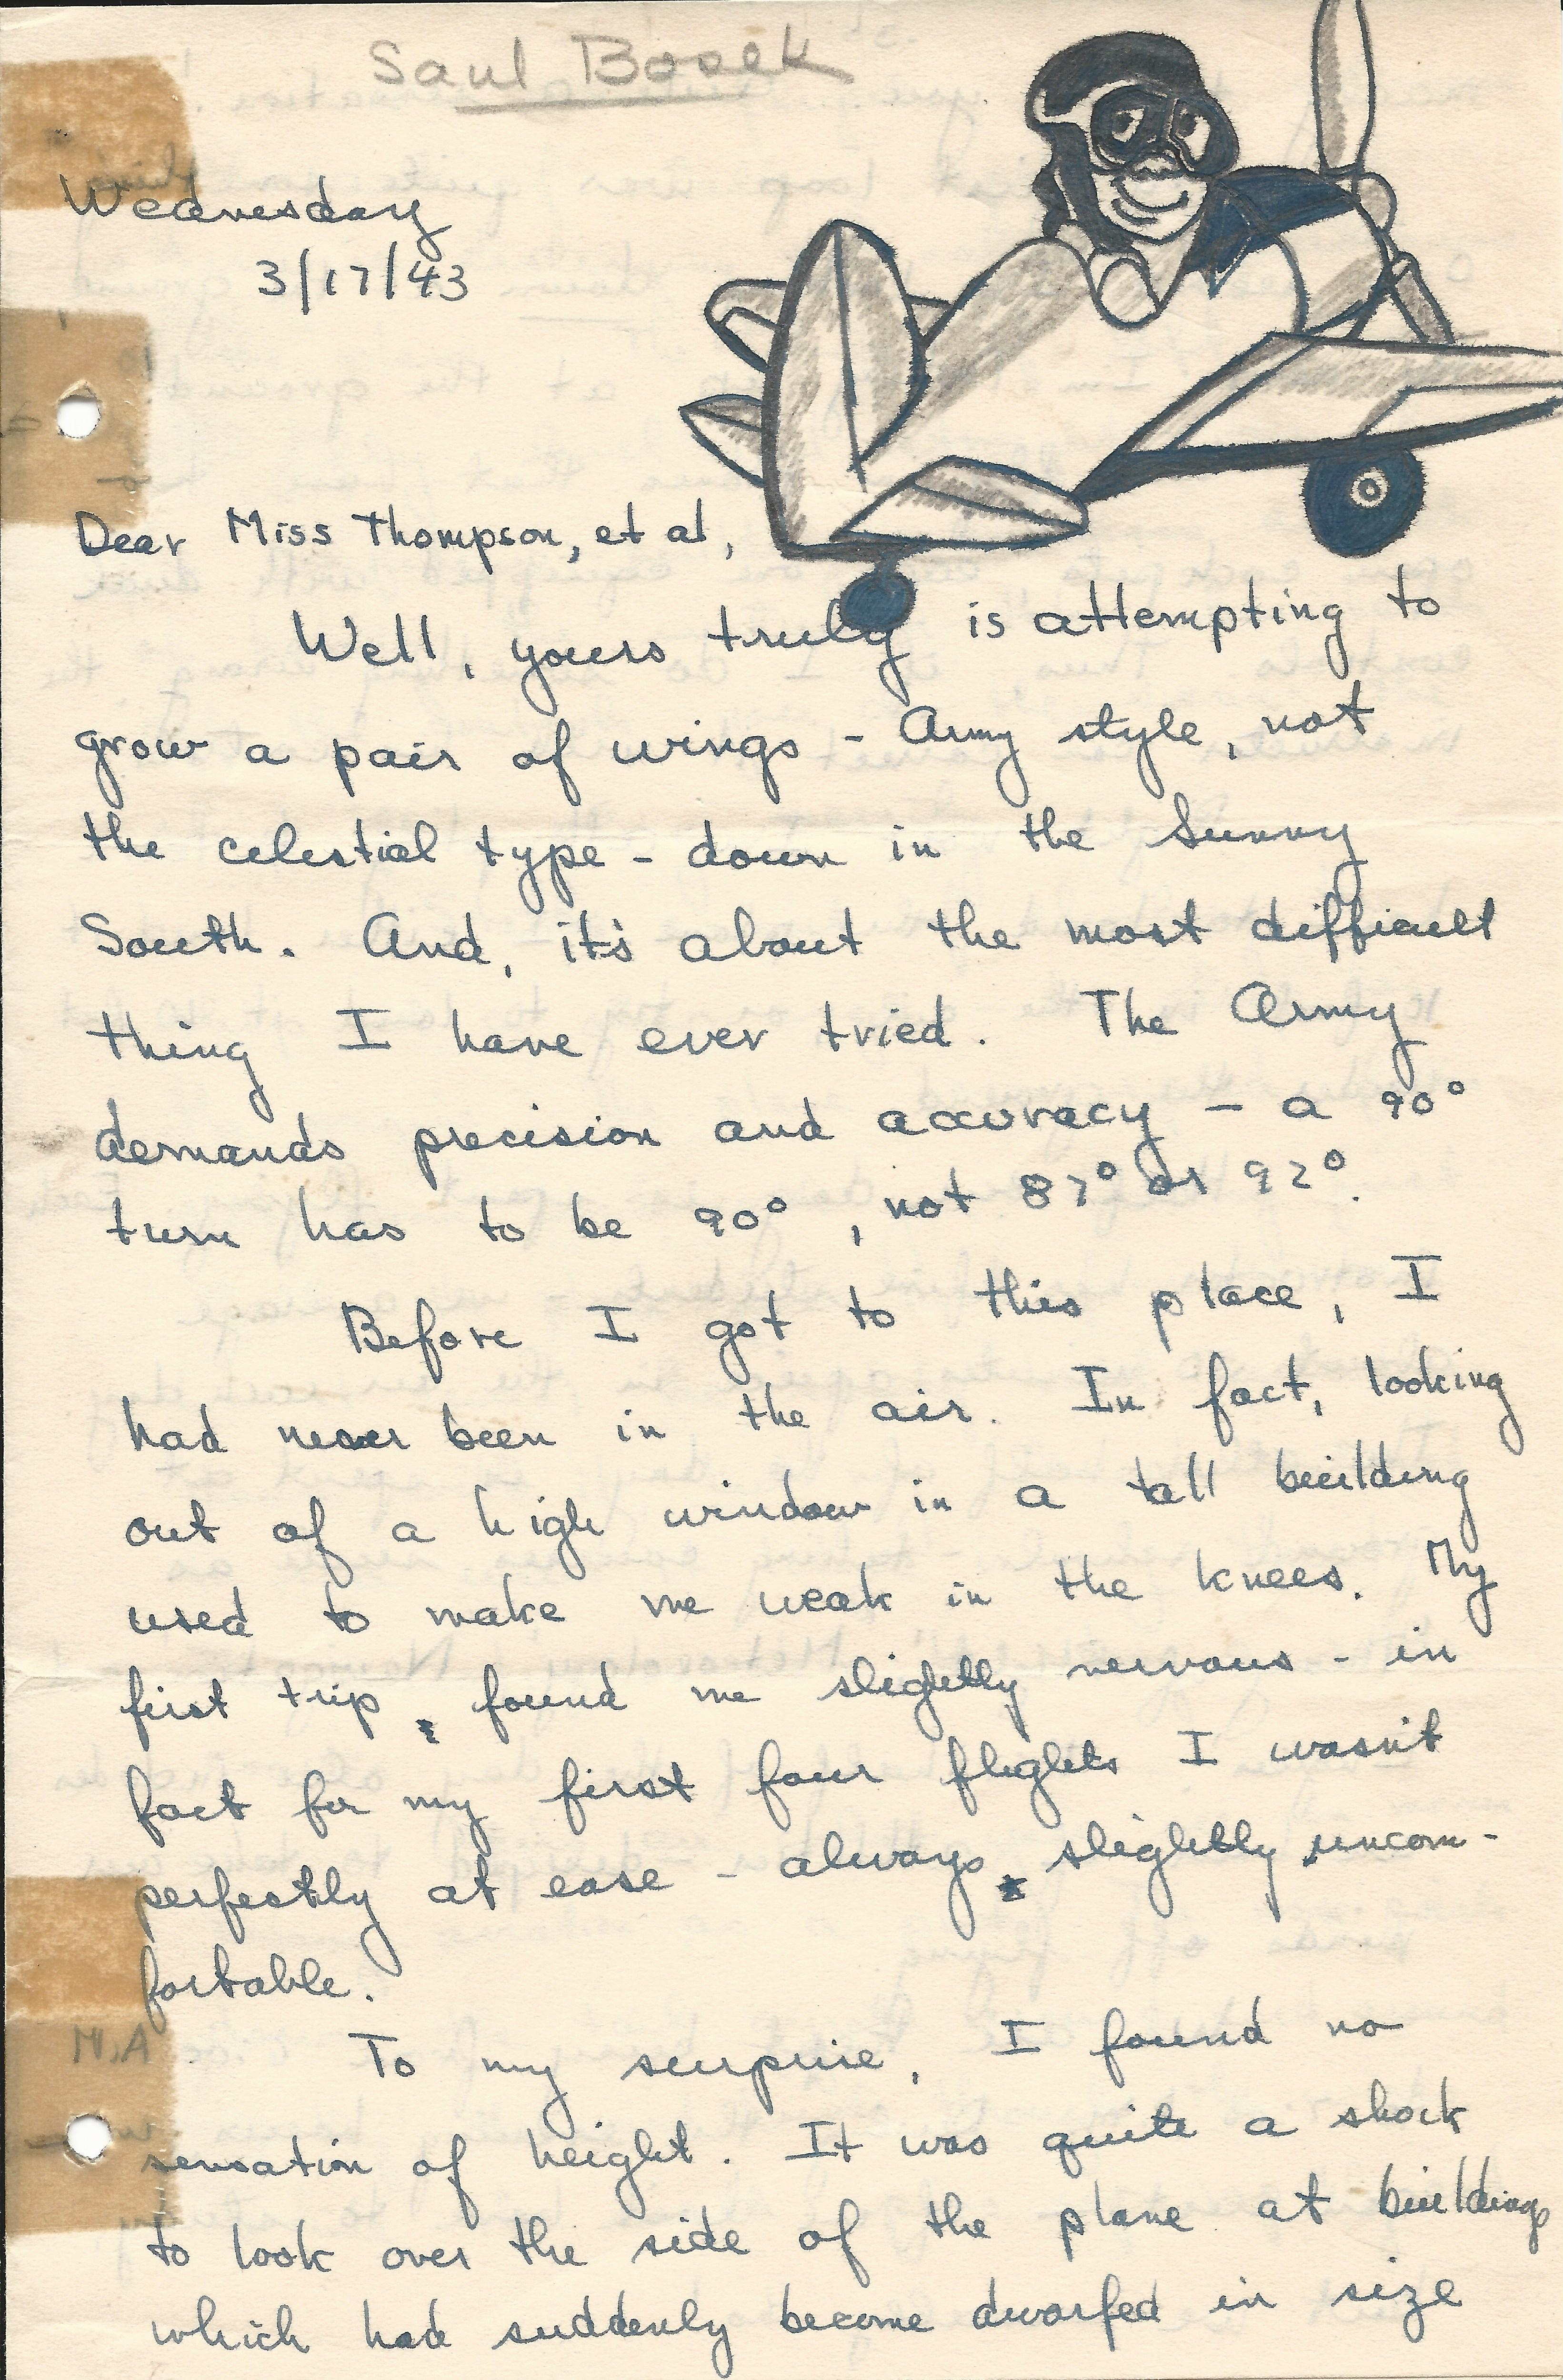 Saul Bosek
Wednesday
3/17/43
Dear Miss Thompson, et al,
Well, yours truly is attempting to
grow a pair of wings - Army style, not
the celestial type - down in the Sunny
South. And, it's about the most difficult
thing I have ever tried. The Army
demands precision and accuracy - a 90°
turn has to be 90°, not 87° or 92°.
Before I got to this place, I
had never been in the air. In fact, looking
out of a high window in a tall building
used to make me weak in the knees. My
first trip found me slightly nervous - in
fact for my first four flights I wasn't
perfectly at ease - always slightly uncom-
fortable.
N.A
To my surprise, I found no
sensation of height. It was quite a shock
to look over the side of the plane at buildings
which had suddenly become dwarfed in size